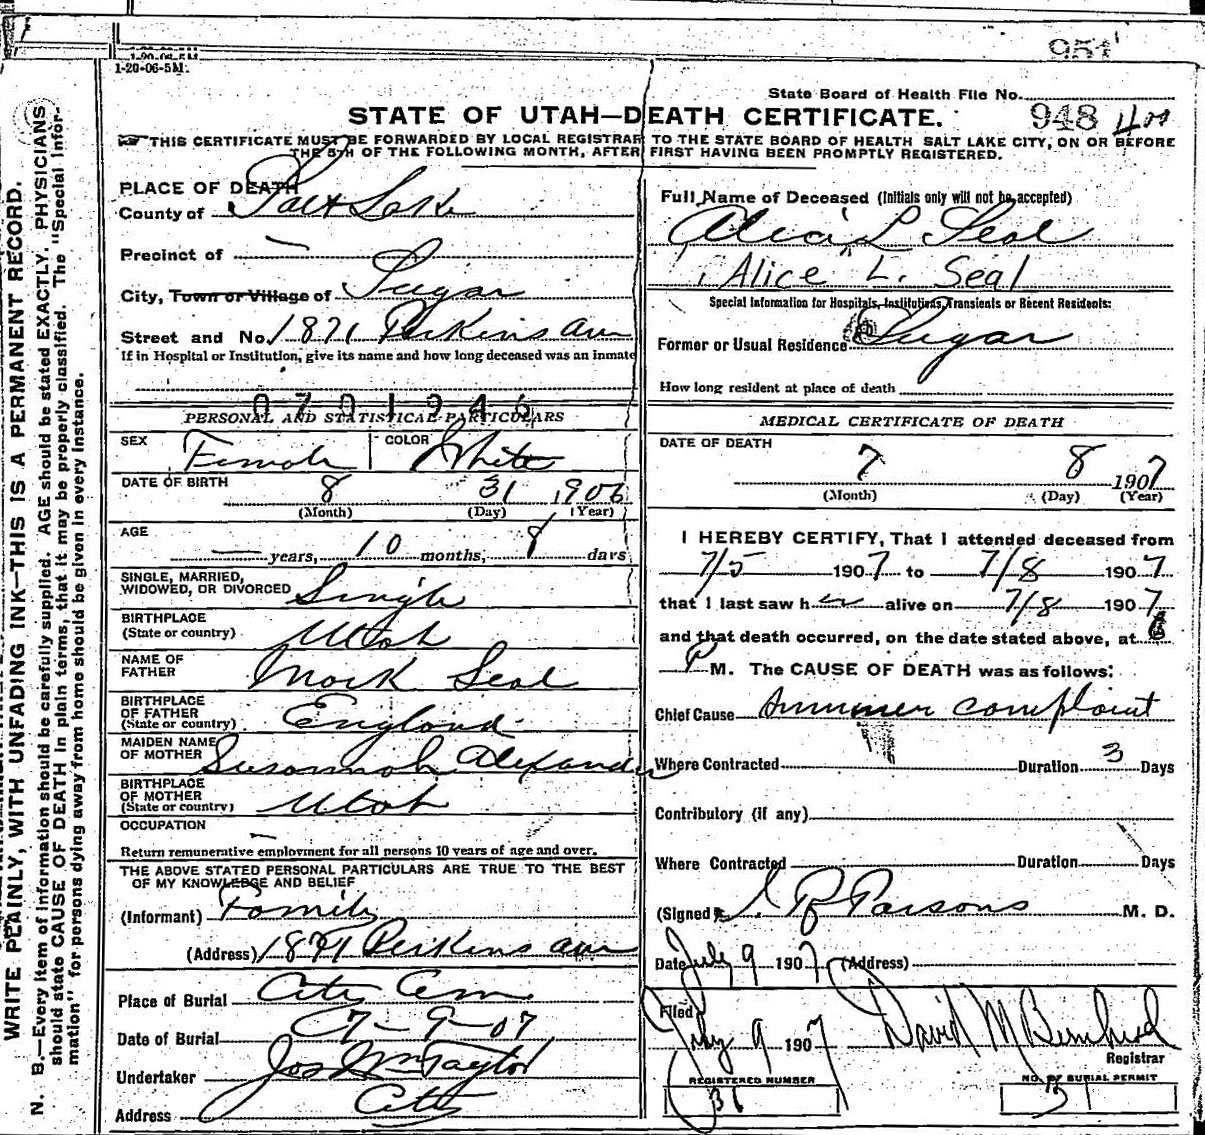 951
1-20-06-5M.
State Board of Health File No. 948
STATE OF UTAH—DEATH CERTIFICATE.
THIS CERTIFICATE MUST BE FORWARDED BY LOCAL REGISTRAR TO THE STATE BOARD OF HEALTH SALT LAKE CITY, ON OR BEFORE
THE 5TH OF THE FOLLOWING MONTH, AFTER FIRST HAVING BEEN PROMPTLY REGISTERED.
PLACE OF DEATH
County of Salt Lake
Precinct of —
City, Town or Village of Sugar
Street and No. 1871 Perkins Ave
If in Hospital or Institution, give its name and how long deceased was an inmate
0701946
PERSONAL AND STATISTICAL PARTICULARS
SEX Female COLOR White
DATE OF BIRTH 8 31 1906
(Month) (Day) (Year)
AGE — years, 10 months, 8 days
SINGLE, MARRIED,
WIDOWED, OR DIVORCED Single
BIRTHPLACE
(State or country) Utah
NAME OF
FATHER Mark Seal
BIRTHPLACE
OF FATHER
(State or country) England
MAIDEN NAME
OF MOTHER Susannah Alexander
BIRTHPLACE
OF MOTHER
(State or country) Utah
OCCUPATION —
Return remunerative employment for all persons 10 years of age and over.
THE ABOVE STATED PERSONAL PARTICULARS ARE TRUE TO THE BEST
OF MY KNOWLEDGE AND BELIEF
(Informant) Family
(Address) 1871 Perkins Ave
Place of Burial City Cem
Date of Burial 7-9-07
Undertaker Jos Wm Taylor
Address City
Full Name of Deceased (Initials only will not be accepted)
Alicia L Seal
"Alice" L. Seal
Special Information for Hospitals, Institutions, Transients or Recent Residents:
Former or Usual Residence Sugar
How long resident at place of death
MEDICAL CERTIFICATE OF DEATH
DATE OF DEATH
7 8 1907
(Month) (Day) (Year)
I HEREBY CERTIFY, That I attended deceased from
7/5 1907 to 7/8 1907
that I last saw her alive on 7/8 1907
and that death occurred, on the date stated above, at 6
P M. The CAUSE OF DEATH was as follows:
Chief Cause Summer complaint
Where Contracted Duration 3 Days
Contributory (if any)
Where Contracted Duration Days
(Signed) Parsons M. D.
Date July 9 1907 (Address)
Filed
July 9 1907 David M
Registrar
REGISTERED NUMBER NO. OF BURIAL PERMIT
31
WRITE PLAINLY, WITH UNFADING INK—THIS IS A PERMANENT RECORD.
N. B.—Every item of information should be carefully supplied. AGE should be stated EXACTLY. PHYSICIANS
should state CAUSE OF DEATH in plain terms, that it may be properly classified. The "Special Infor-
mation" for persons dying away from home should be given in every instance.